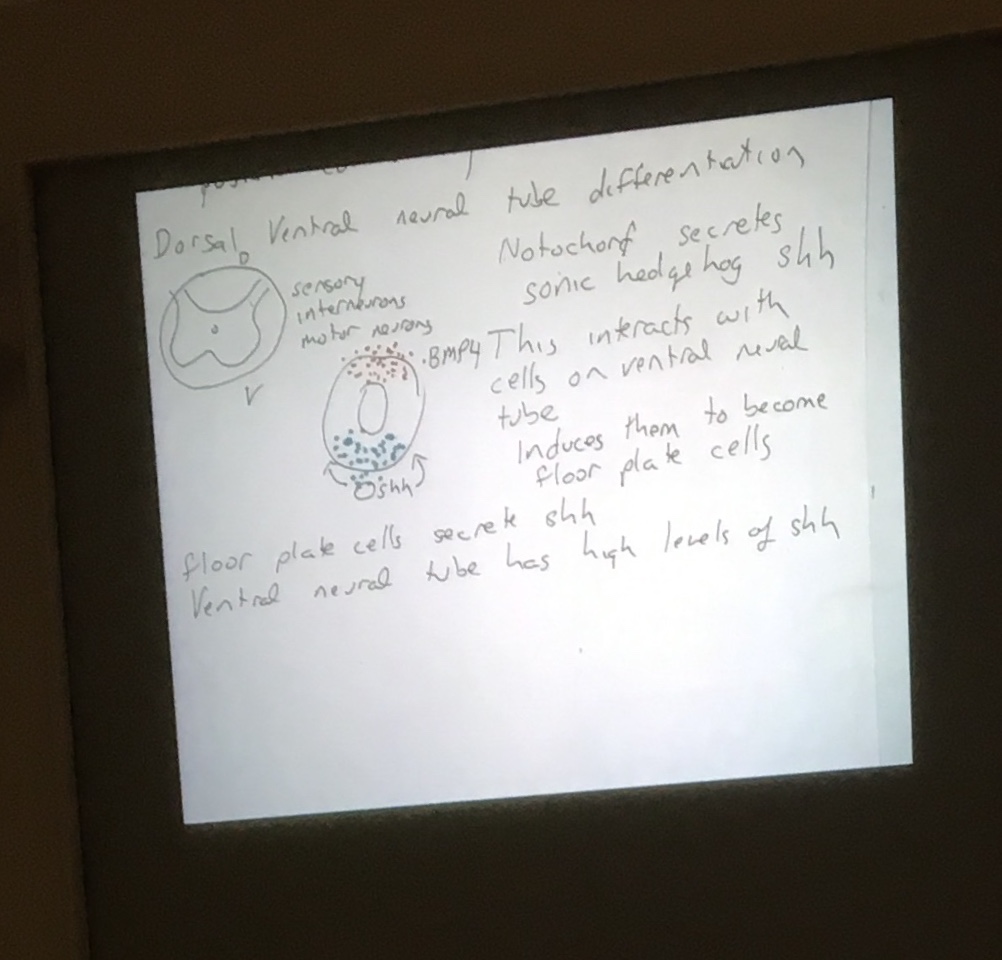 Dorsal Ventral neural tube differentiation
D
sensory
interneurons
motor neurons
V
BMP4
shh
Notochord secretes
sonic hedgehog shh
This interacts with
cells on ventral neural
tube
Induces them to become
floor plate cells
floor plate cells secrete shh
Ventral neural tube has high levels of shh